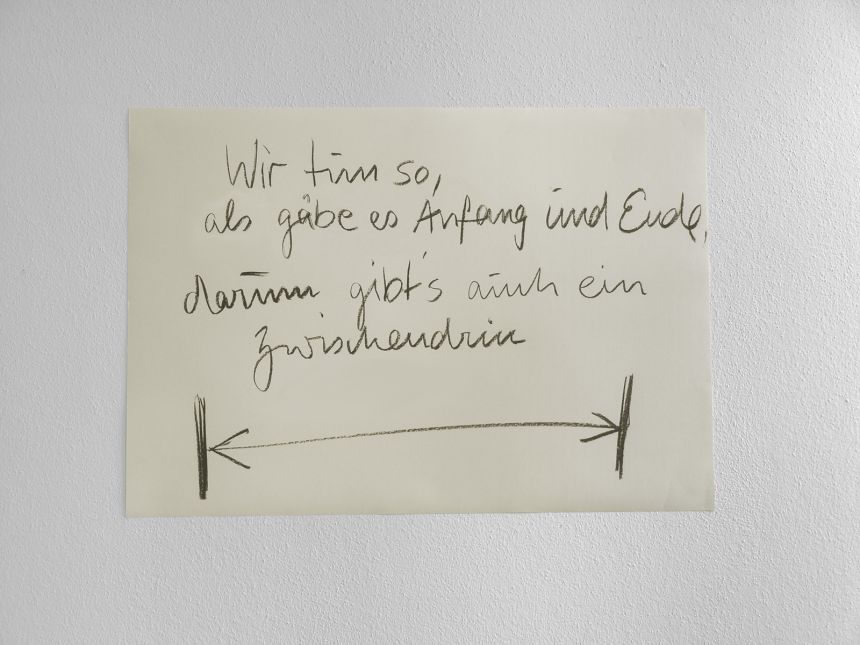 Wir tun so,
als gäbe es Anfang und Ende,
darum gibt's auch ein
Zwischendrin